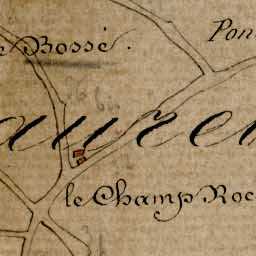 Bossé.
Pon
auren
le Champ Roc